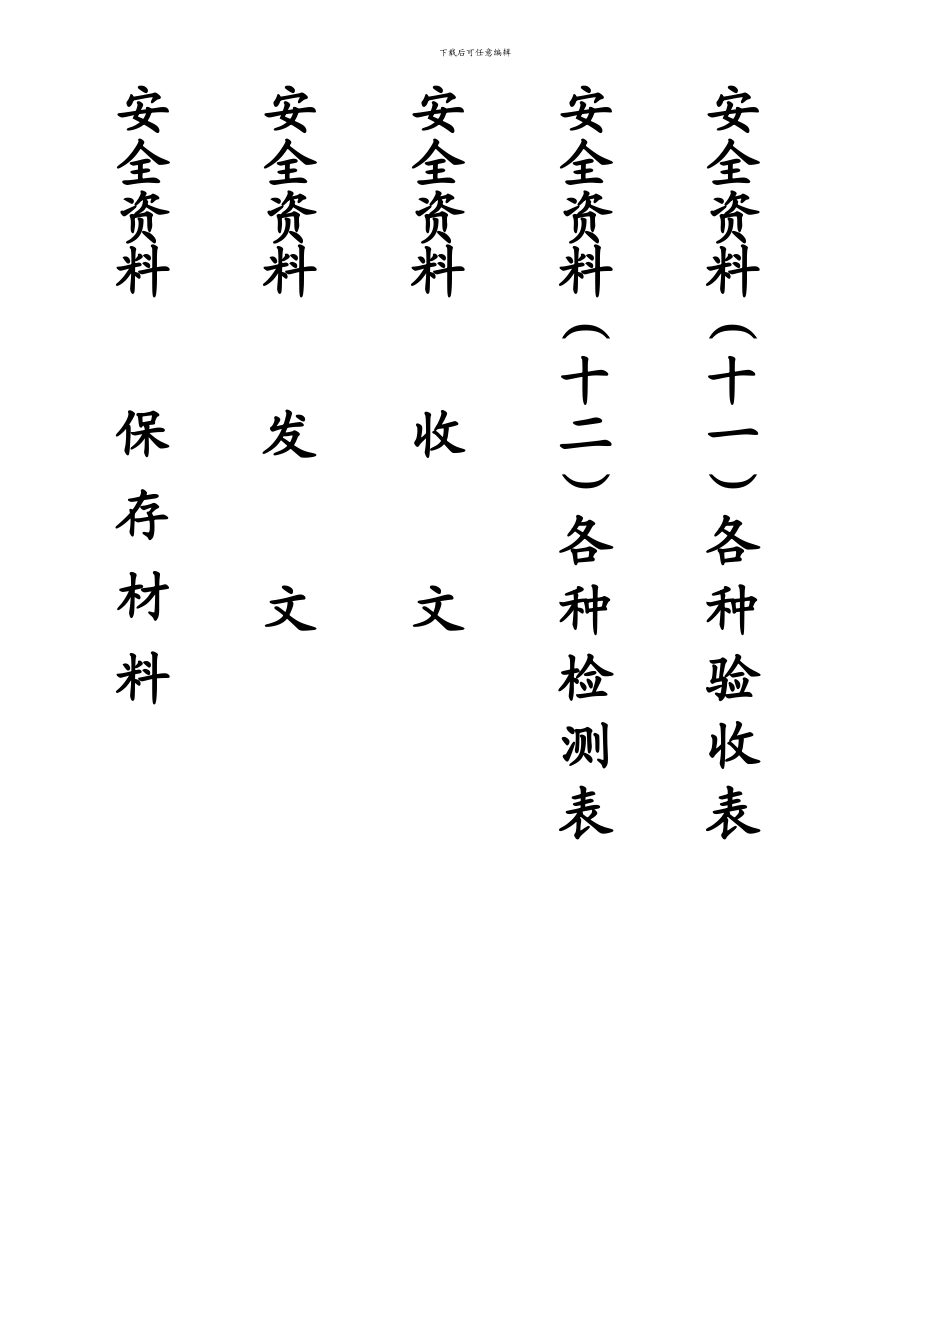 下载后可任意编辑
安全资料（十一）各种验收表
安全资料（十二）各种检测表
安全资料 收文
安全资料 发文
安全资料 保存材料